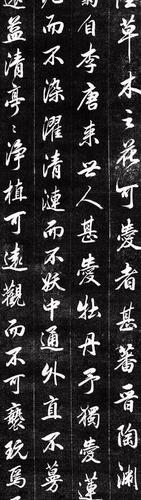 陸草木之花可愛者甚蕃晋陶渊
菊自李唐来世人甚愛牡丹予獨愛蓮
泥而不染濯清漣而不妖中通外直不蔓
遠益清亭〻淨植可遠觀而不可褻玩焉